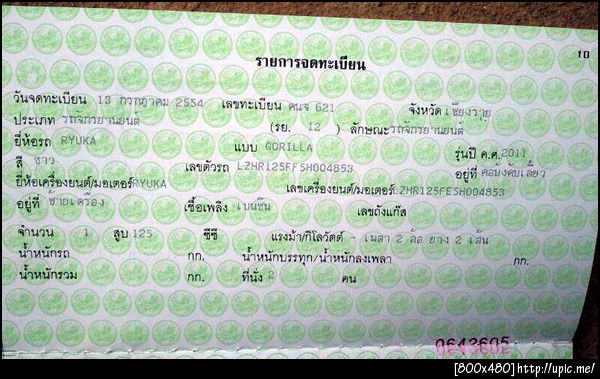 10
รายการจดทะเบียน
วันจดทะเบียน 13 กรกฎาคม 2554 เลขทะเบียน คนจ 621 จังหวัด เชียงราย
ประเภท รถจักรยานยนต์ (รย. 12 ) ลักษณะ รถจักรยานยนต์
ยี่ห้อรถ RYUKA แบบ GORILLA รุ่นปี ค.ศ. 2011
สี ขาว เลขตัวรถ LZHR125FF5H004853 อยู่ที่ คอบังคับเลี้ยว
ยี่ห้อเครื่องยนต์/มอเตอร์ RYUKA เลขเครื่องยนต์/มอเตอร์ LZHR125FE5H004853
อยู่ที่ ซ้ายเครื่อง เชื้อเพลิง เบนซิน เลขถังแก๊ส
จำนวน 1 สูบ 125 ซีซี แรงม้า/กิโลวัตต์ - เพลา 2 ล้อ ยาง 2 เส้น
น้ำหนักรถ กก. น้ำหนักบรรทุก/น้ำหนักลงเพลา กก.
น้ำหนักรวม กก. ที่นั่ง 2 คน
0643605
[800x480] http://upic.me/